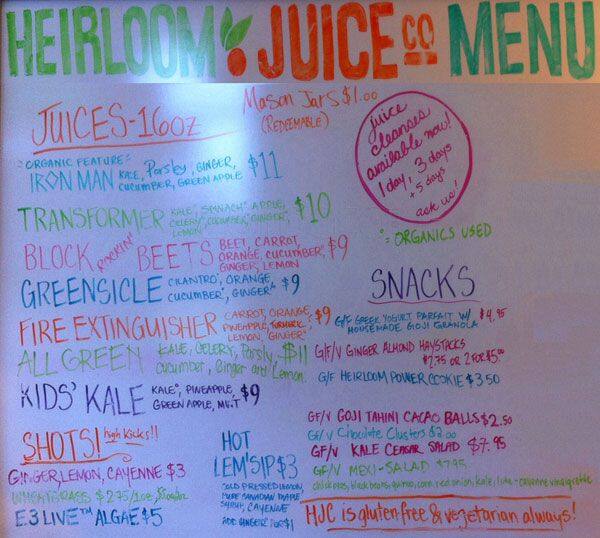 HEIRLOOM JUICE CO MENU
JUICES-16oz
Mason Jars $1.00
(REDEEMABLE)
juice
cleanses
available now!
1 day, 3 days
+ 5 days
ask us!
"ORGANIC FEATURE"
IRON MAN KALE, Parsley, GINGER, CUCUMBER, GREEN APPLE $11
TRANSFORMER KALE, SPINACH, APPLE, CELERY, CUCUMBER, GINGER, LEMON $10
BLOCK ROCKIN' BEETS BEET, CARROT, ORANGE, CUCUMBER, GINGER, LEMON $9
GREENSICLE CILANTRO, ORANGE, CUCUMBER, GINGER $9
FIRE EXTINGUISHER CARROT, ORANGE, PINEAPPLE, TURMERIC, LEMON, GINGER $9
ALL GREEN KALE, CELERY, Parsly, cucumber, Ginger and Lemon $11
KIDS' KALE KALE, PINEAPPLE, GREEN APPLE, MINT $9
° = ORGANICS USED
SNACKS
G/F GREEK YOGURT PARFAIT W/ HOUSEMADE GOJI GRANOLA $4.95
G/F/V GINGER ALMOND HAYSTACKS
$2.75 OR 2 FOR $5.00
G/F HEIRLOOM POWER COOKIE $3.50
GF/V GOJI TAHINI CACAO BALLS $2.50
GF/V Chocolate Clusters $2.00
GF/V KALE CEASAR SALAD $7.95
GF/V MEXI-SALAD $7.95
chick peas, black beans, quinoa, corn, red onion, kale, lime-cayenne vinaigrette
SHOTS! high kicks!!
GINGER, LEMON, CAYENNE $3
WHEATGRASS $2.75/1oz
E3 LIVE™ ALGAE $5
HOT
LEM'SIP $3
COLD PRESSED LEMON,
PURE CANADIAN MAPLE
SYRUP, CAYENNE
ADD GINGER FOR $1
HJC is gluten free & vegetarian always!